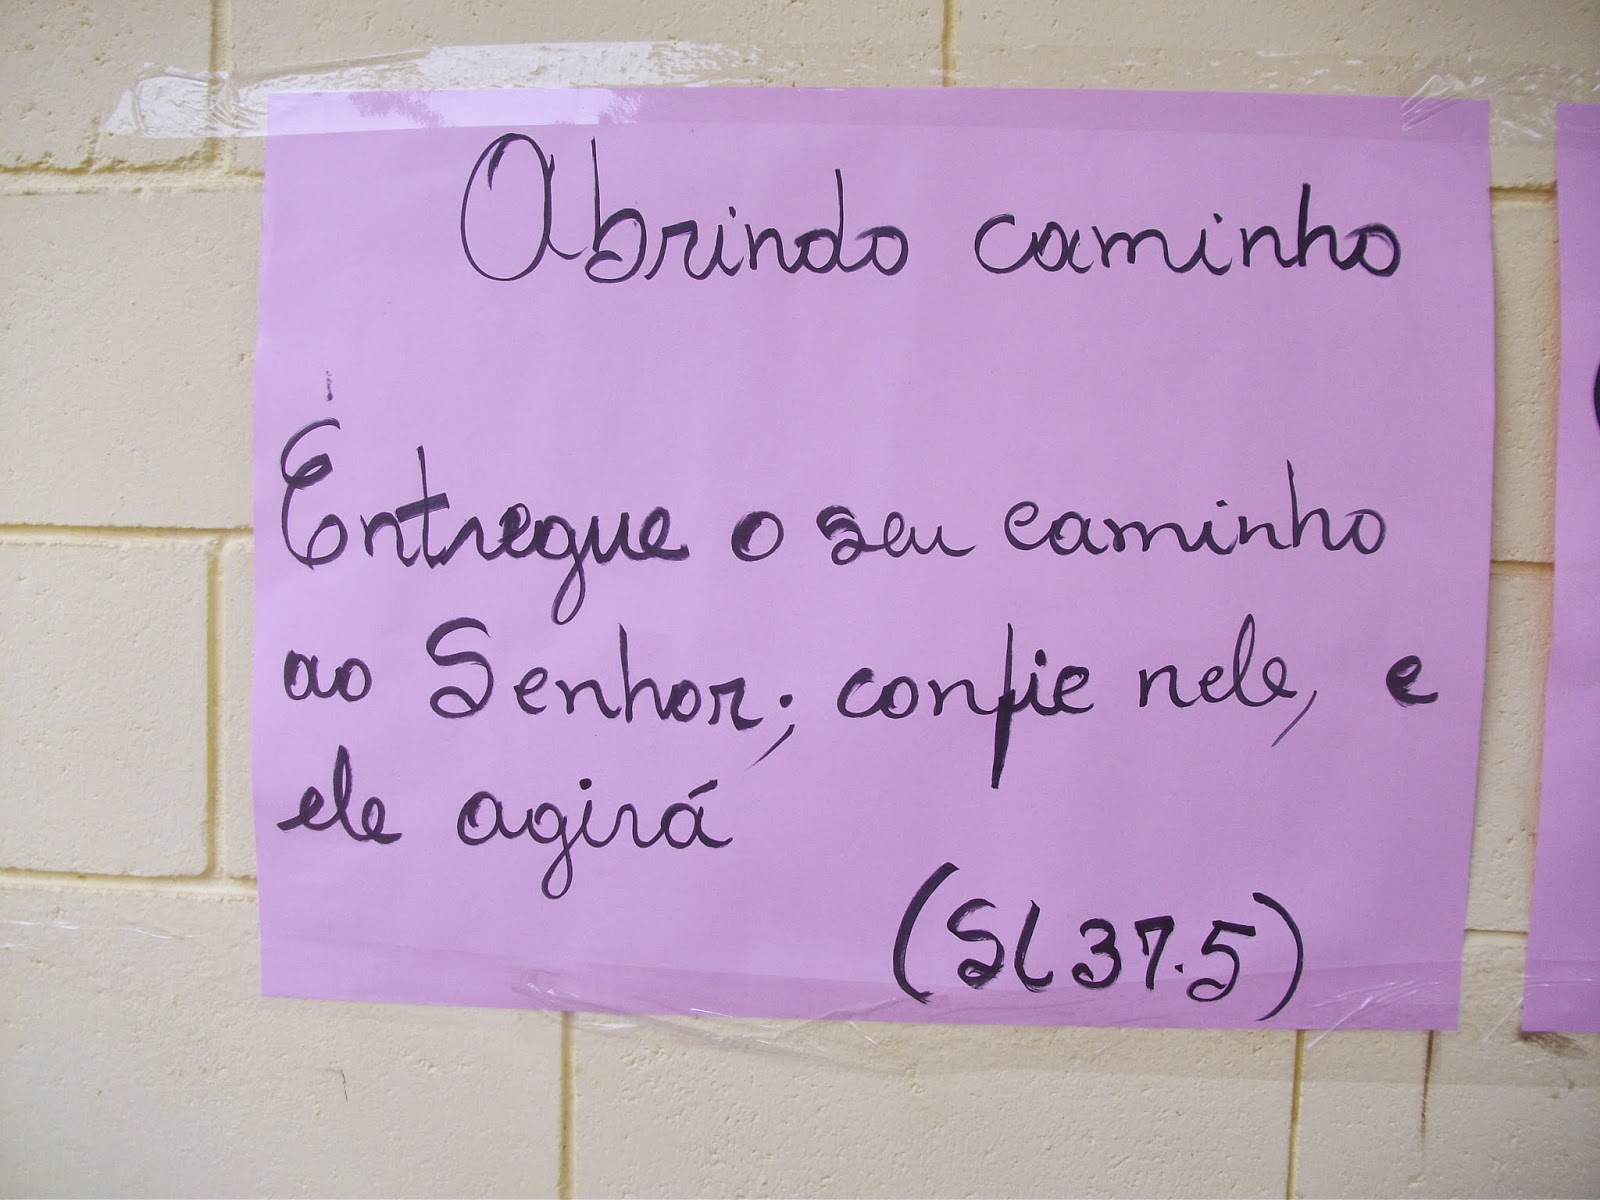 Abrindo caminho
Entregue o seu caminho
ao Senhor; confie nele, e
ele agirá
(Sl 37.5)